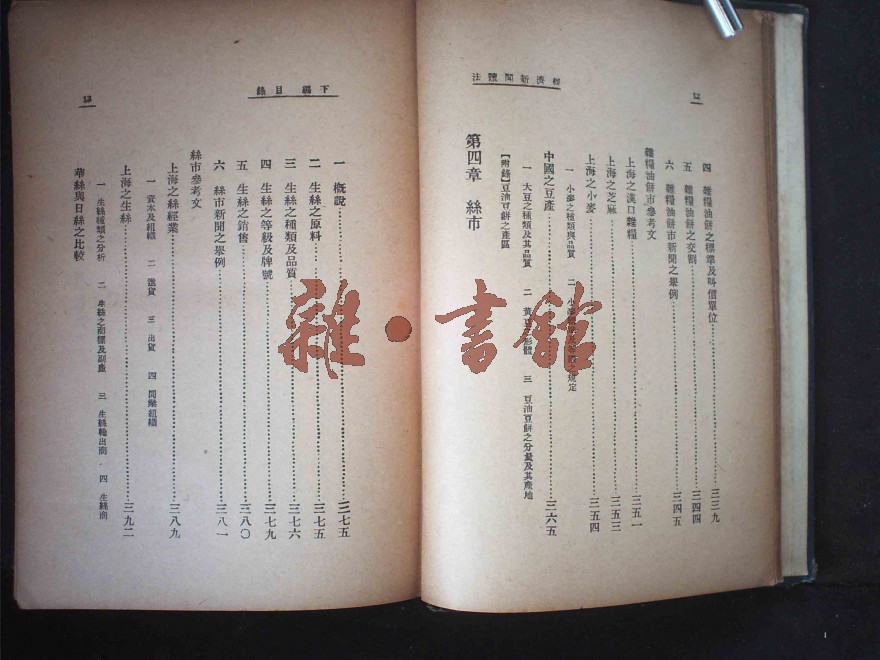 經濟新聞讀法
12
四 雜糧油餅之標準及叫價單位……三三九
五 雜糧油餅之交割……三四四
六 雜糧油餅市新聞之舉例……三四五
雜糧油餅市參考文
上海之漢口雜糧……三五一
上海之芝麻……三五三
上海之小麥……三五四
一 小麥之種類與品質 二 小規定
中國之豆產……三六五
一 大豆之種類及其品質 二 黃豆形體 三 豆油豆餅之分量及其產地
【附錄】豆油豆餅之產區
第四章 絲市
下編 目錄
13
一 概說……三七五
二 生絲之原料……三七五
三 生絲之種類及品質……三七六
四 生絲之等級及牌號……三七九
五 生絲之銷售……三八〇
六 絲市新聞之舉例……三八一
絲市參考文
上海之絲經業……三八九
一 資本及組織 二 進貨 三 出貨 四 間繅組織
上海之生絲……三九二
一 生絲種類之分析 二 生絲之商標及副產 三 生絲輸出商 四 生絲商
華絲與日絲之比較
雜·書館